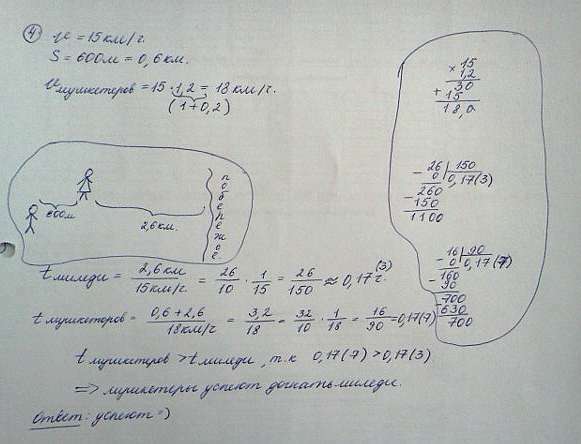 ④ ϑ = 15 км/ч.
S = 600м = 0,6 км.
ϑмушкетеров = 15 · 1,2 = 18 км/ч.
(1+0,2)
600м
2,6 км.
побережое
t миледи = 2,6 км / 15 км/ч = 26/10 · 1/15 = 26/150 ≈ 0,17(3) ч.
t мушкетеров = 0,6 + 2,6 / 18 км/ч = 3,2/18 = 32/10 · 1/18 = 16/90 = 0,17(7)
t мушкетеров > t миледи, т.к 0,17(7) > 0,17(3)
=> мушкетеры успеют догнать миледи.
Ответ: успеют =)
× 15
1,2
30
+ 15
18,0
- 26 | 150
0 | 0,17(3)
260
- 150
1100
- 16 | 90
0 | 0,17(7)
- 160
90
- 700
630
700